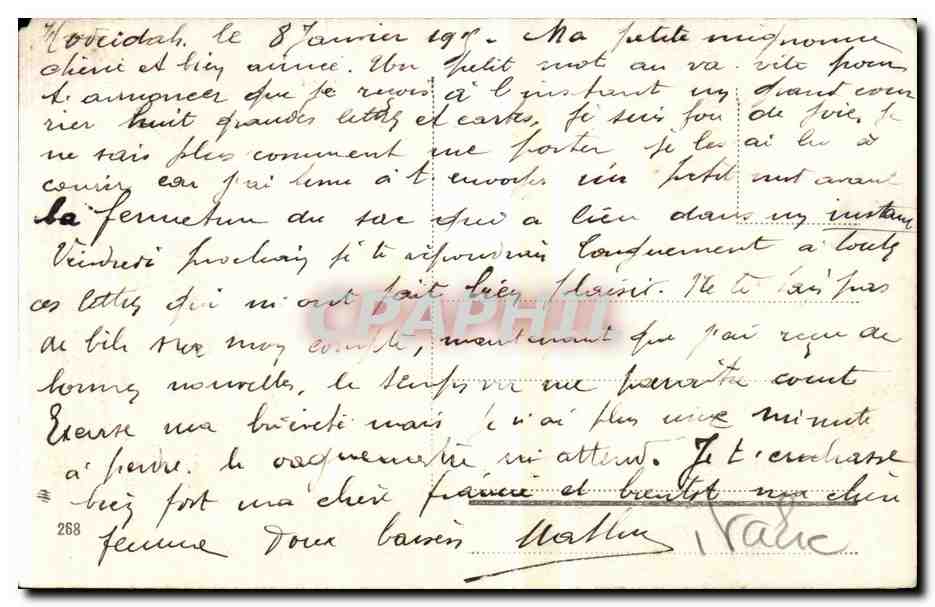 le 8 Janvier 191 - Ma petite mignonne
chérie et bien aimée. Un petit mot au va-vite pour
t'annoncer que je reçois à l'instant un grand cour
rier huit grandes lettres et cartes, je suis fou de joie, je
ne sais plus comment me porter je les ai lu à
courir car j'ai tenu à t'envoyer un petit mot avant
la fermeture du sac qui a lieu dans un instant
Vendredi prochain je te répondrai longuement à toutes
ces lettres qui m'ont fait bien plaisir. Ne te fais pas
de bile sur mon compte, maintenant que j'ai reçu de
bonnes nouvelles, le temps va me paraître court
Excuse ma brièveté mais je n'ai plus une minute
à perdre. le vaguemestre m'attend. Je t'embrasse
bien fort ma chère fiancée et bientôt ma chère
femme Doux baisers
268
CPAPHIL